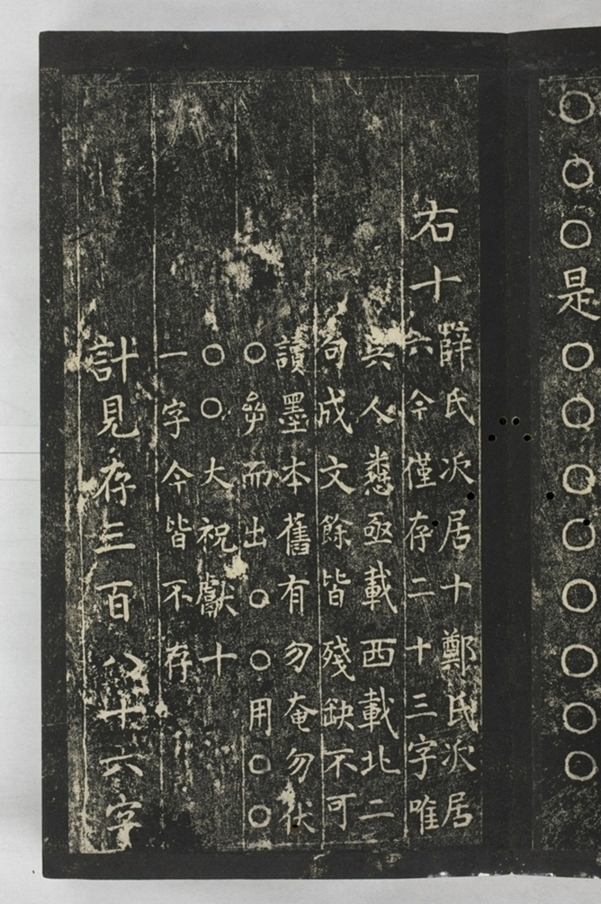 ○○○是○○○○○○○○
右十
薛氏次居十鄭氏次居
六今僅存二十三字唯
吳人亟載西載北二
句成文餘皆殘缺不可
讀墨本舊有勿奄勿伏
○而出○○用○○
○○大祝獻十
一字今皆不存
計見存三百八十六字